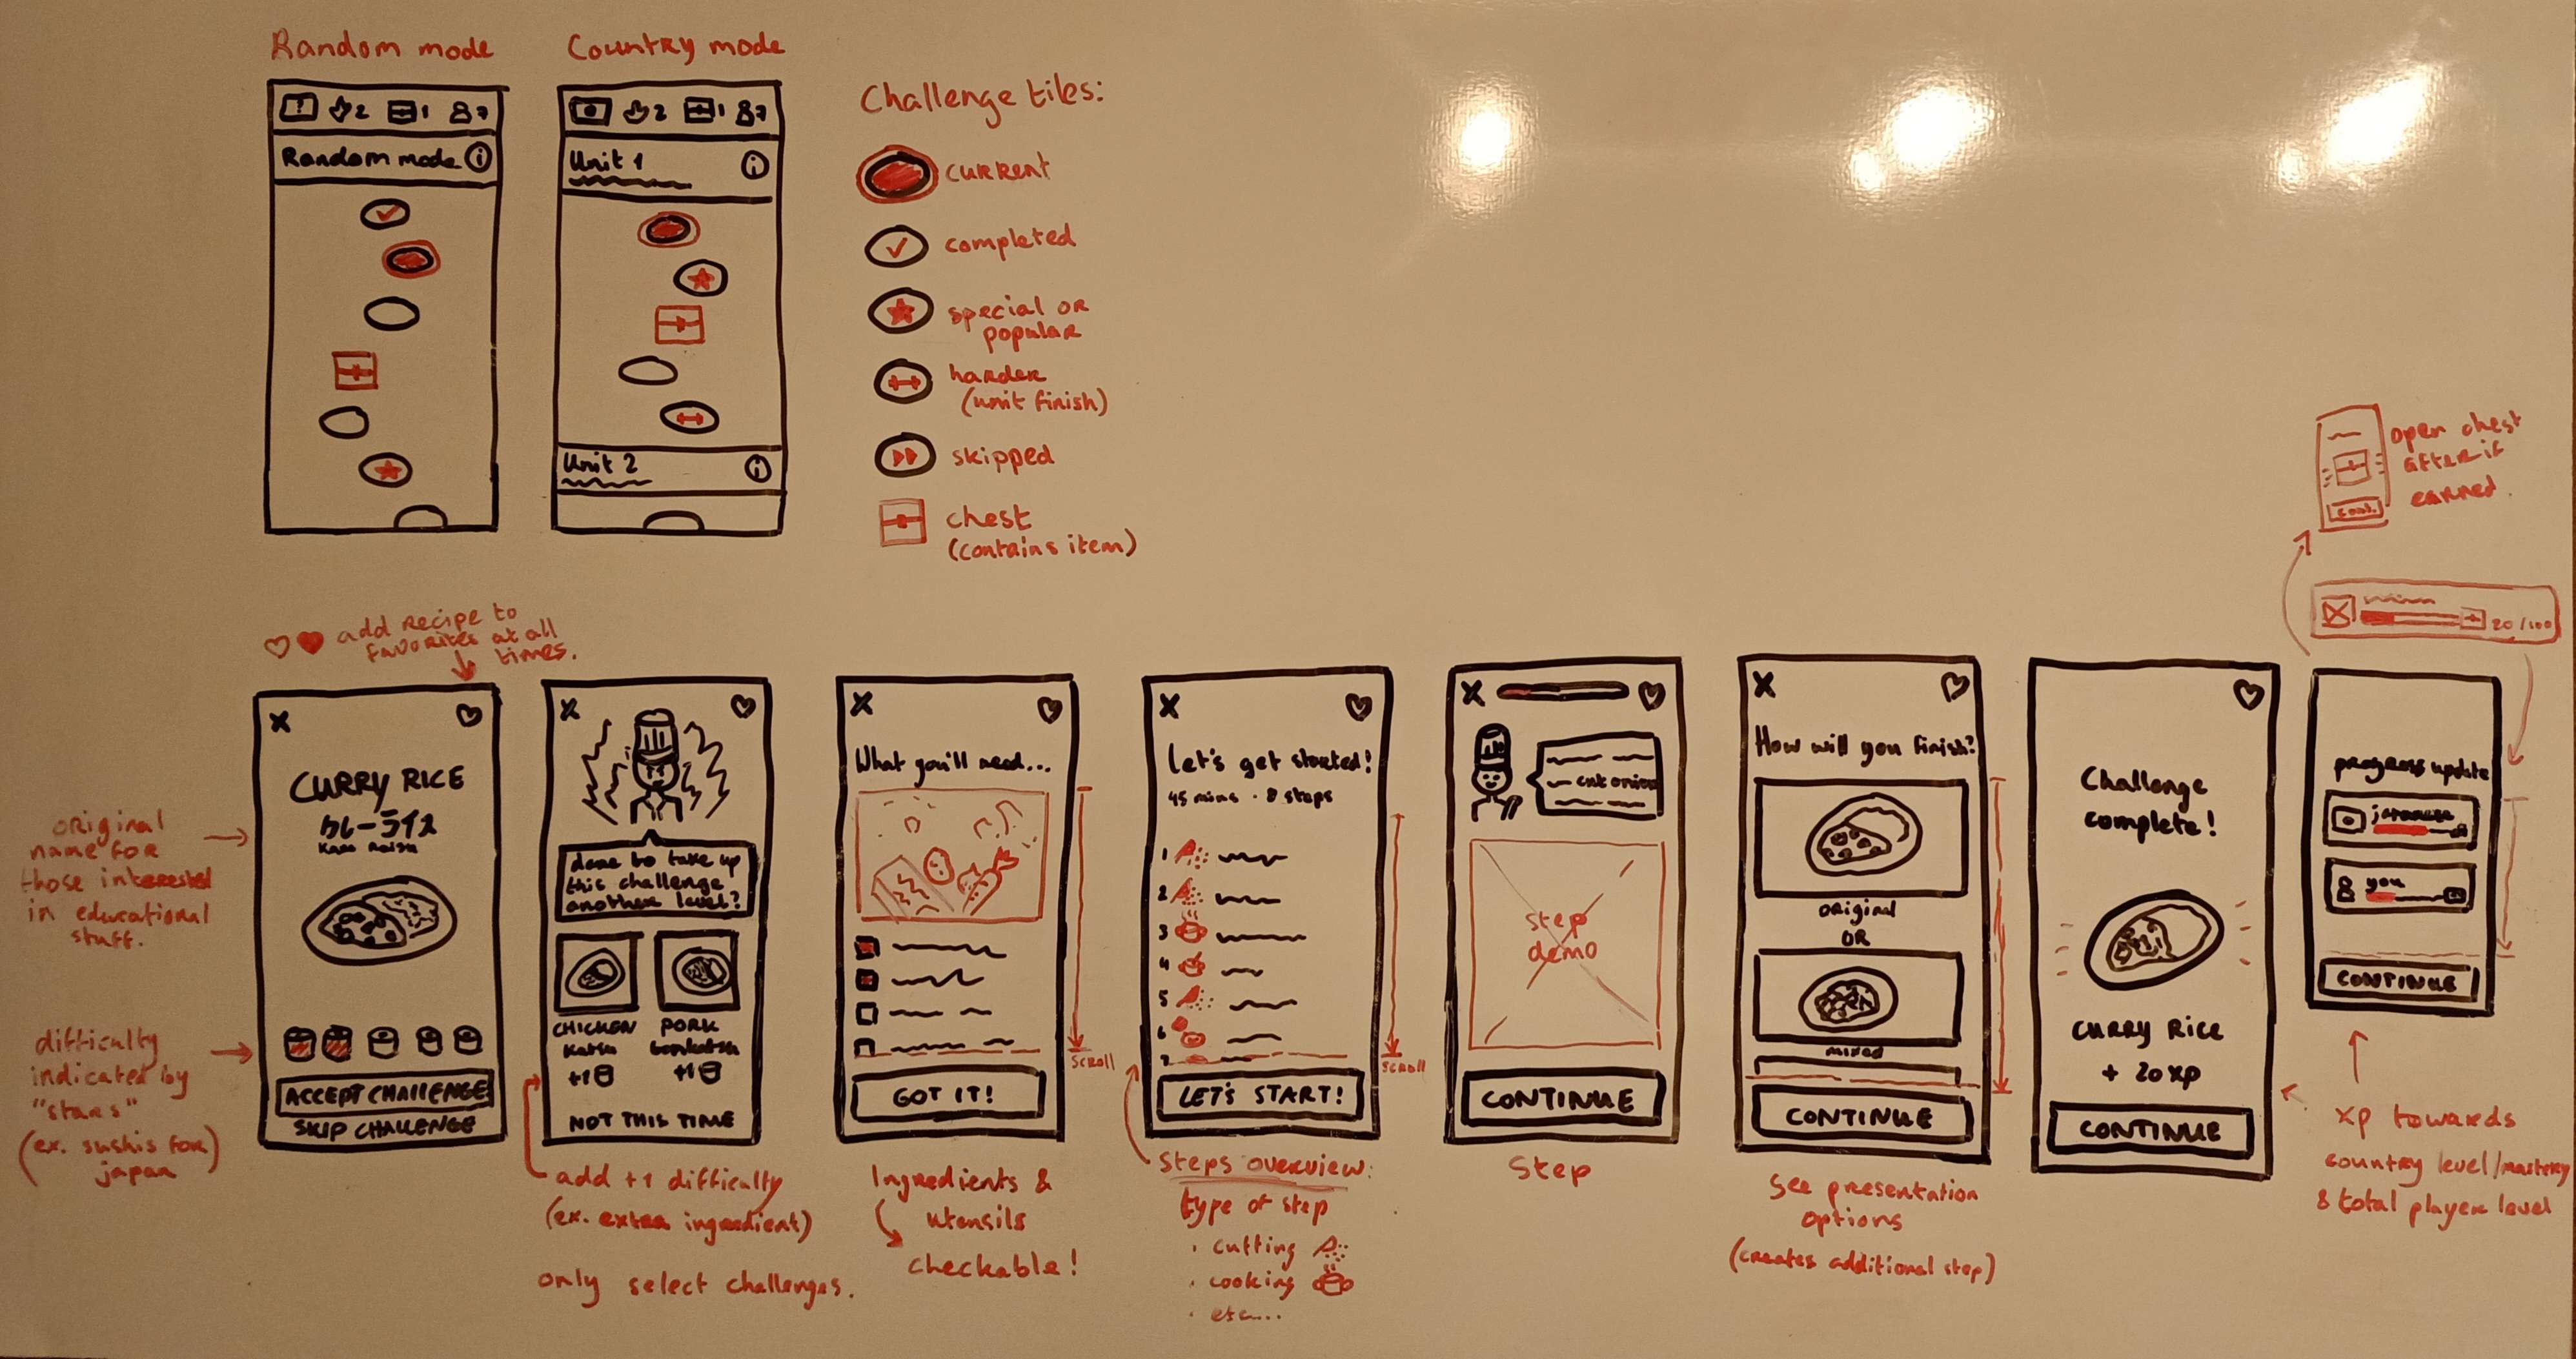 Random mode
2 1 7
Random mode i
Country mode
2 1 7
Unit 1 i
Unit 2 i
Challenge tiles:
current
completed
special or
popular
harder
(unit finish)
skipped
chest
(contains item)
open chest
after if
earned.
cont.
20/100
add recipe to
favorites at all
times.
original
name for
those interested
in educational
stuff.
difficulty
indicated by
"stars"
(ex. sushis for
japan)
X
CURRY RICE
カレーライス
ACCEPT CHALLENGE
SKIP CHALLENGE
X
dare to take up
this challenge
another level?
CHICKEN
katsu
+1
PORK
tonkatsu
+1
NOT THIS TIME
add +1 difficulty
(ex. extra ingredient)
only select challenges.
X
What you'll need...
SCROLL
GOT IT!
Ingredients &
utensils
checkable!
X
Let's get started!
45 mins · 8 steps
1
2
3
4
5
6
7
SCROLL
LET'S START!
steps overview:
type of step
· cutting
· cooking
· etc...
X
cut onion
step
demo
CONTINUE
Step
X
How will you finish?
original
OR
mixed
CONTINUE
See presentation
options
(creates additional step)
Challenge
complete!
CURRY RICE
+ 20 xp
CONTINUE
progress update
japanese
you
CONTINUE
xp towards
country level/mastery
& total player level